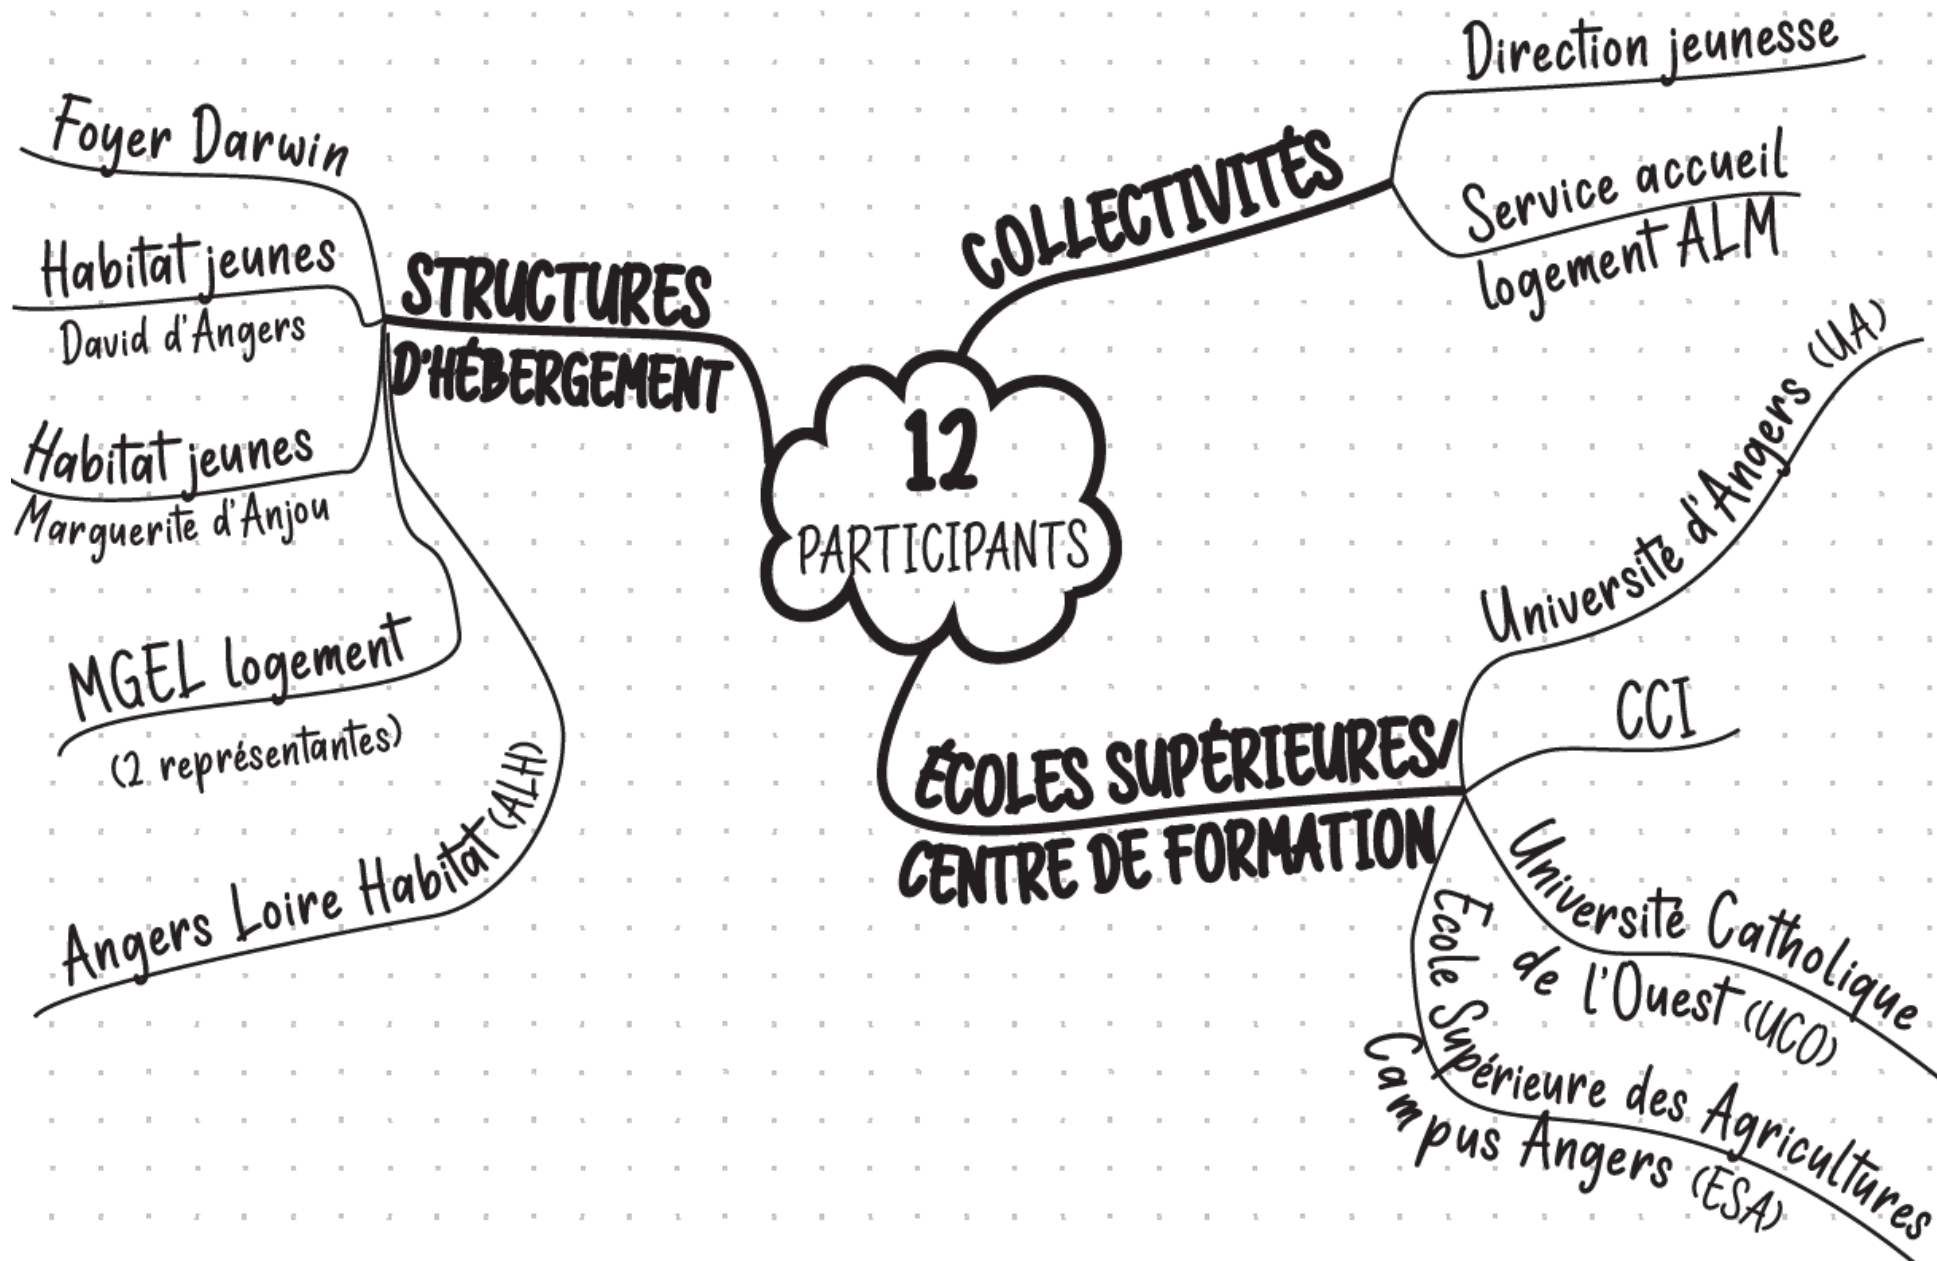 12
PARTICIPANTS
STRUCTURES
D'HÉBERGEMENT
Foyer Darwin
Habitat jeunes
David d'Angers
Habitat jeunes
Marguerite d'Anjou
MGEL logement
(2 représentantes)
Angers Loire Habitat (ALH)
COLLECTIVITÉS
Direction jeunesse
Service accueil
logement ALM
ÉCOLES SUPÉRIEURES/
CENTRE DE FORMATION
Université d'Angers (UA)
CCI
Université Catholique
de l'Ouest (UCO)
Ecole Supérieure des Agricultures
Campus Angers (ESA)